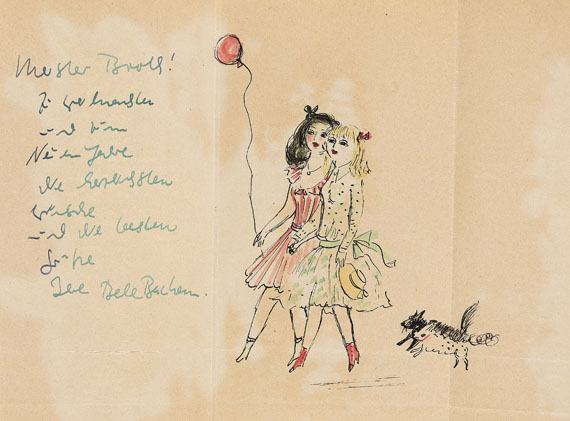 Meister Broch!
Zu Weihnachten
und zum
Neuen Jahre
die herzlichsten
Wünsche
und die besten
Grüße
Ihre Bele Bachem.